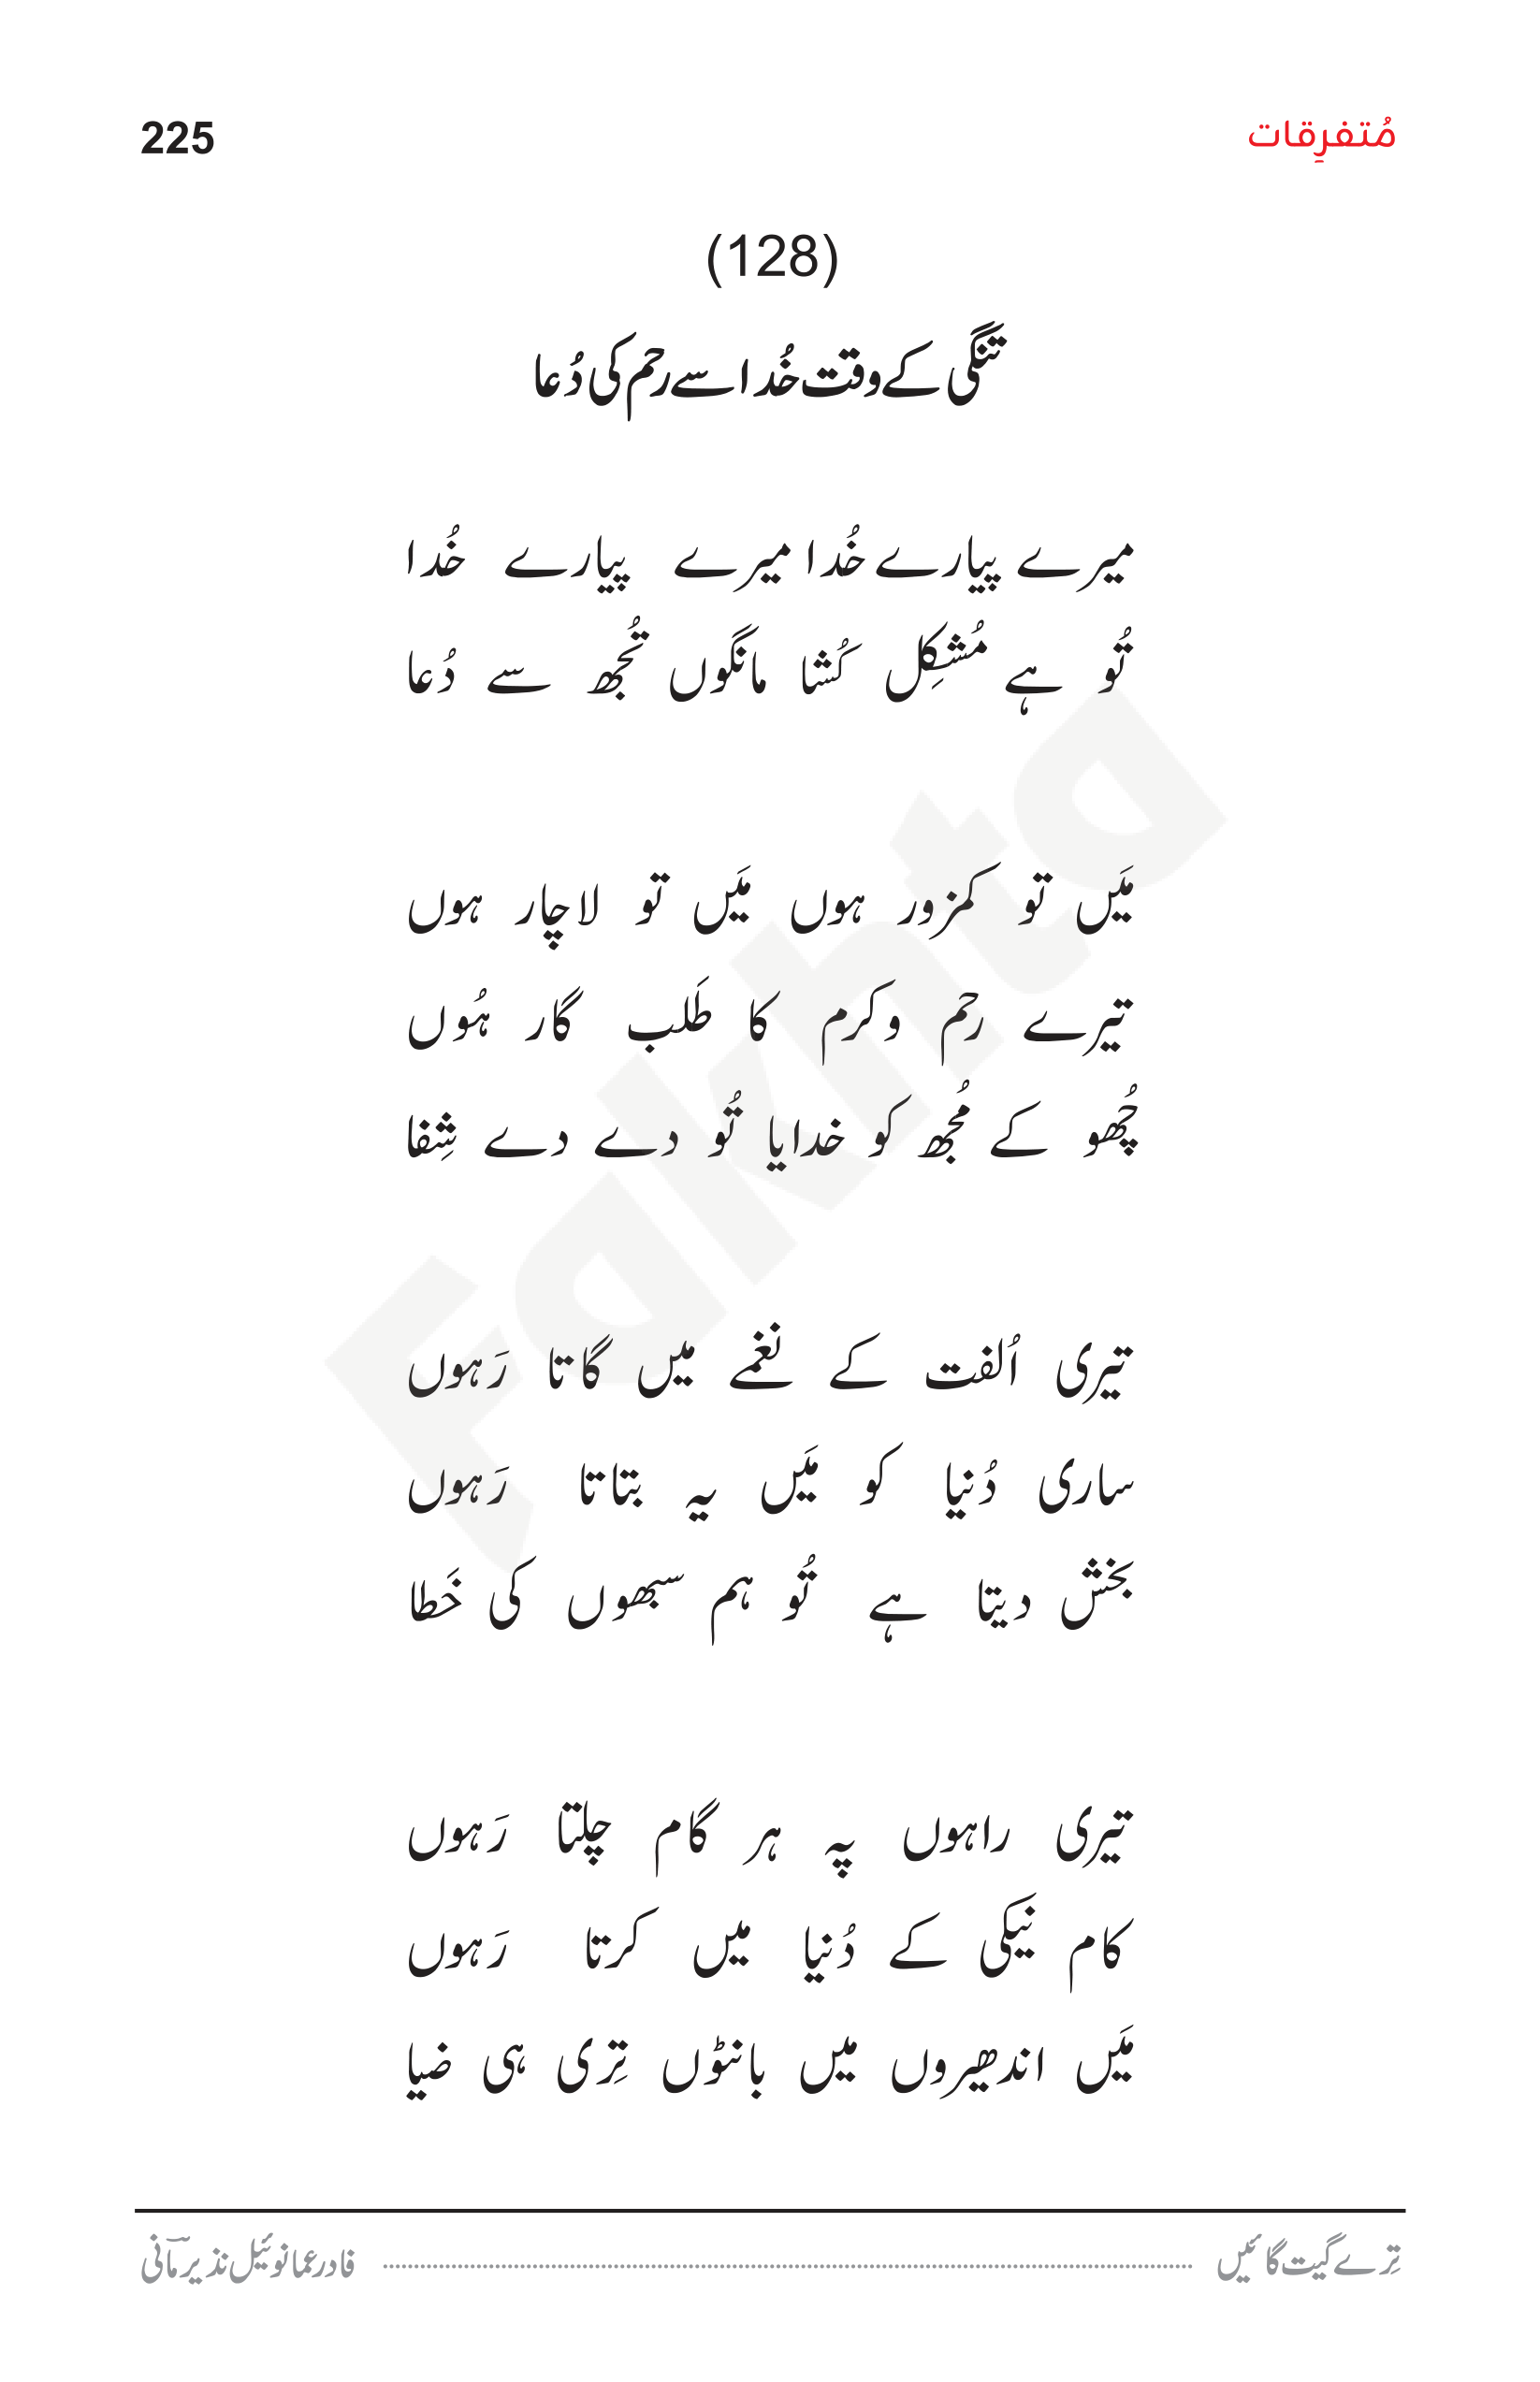 مُتفرِقات 225
(128)
تنگی کے وقت خُدا سے رحم کی دُعا
میرے پیارے خُدا میرے پیارے خُدا
تُو ہے مُشکِل کُشا مانگوں تُجھ سے دُعا
مَیں تو کمزور ہوں مَیں تو لاچار ہوں
تیرے رحم وکرم کا طَلب گار ہُوں
چُھو کے مُجھ کو خدایا تُو دے دے شِفا
تیری اُلفت کے نغمے میں گاتا رَہوں
ساری دُنیا کو مَیں یہ بتاتا رَہوں
بخش دیتا ہے تُو ہم سبھوں کی خَطا
تیری راہوں پہ ہر گام چلتا رَہوں
کام نیکی کے دُنیا میں کرتا رَہوں
مَیں اندھیروں میں بانٹوں تِری ہی ضیا
تِرے گیت گائیں فادر عمانوئیل نذیر مآنی
Fakhta